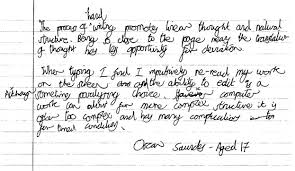 hand
The process of writing promotes linear thought and natural
structure. Being so close to the page means the translation
of thought has less opportunity for deviation.
When typing I find I impulsively re-read my work
on the screen and the ability to edit is a
Although
sometimes paralysing choice. computer
work can allow for more complex structure it is
often too complex and has many complications
for timed conditions.
Oscar Saunders - Aged 17